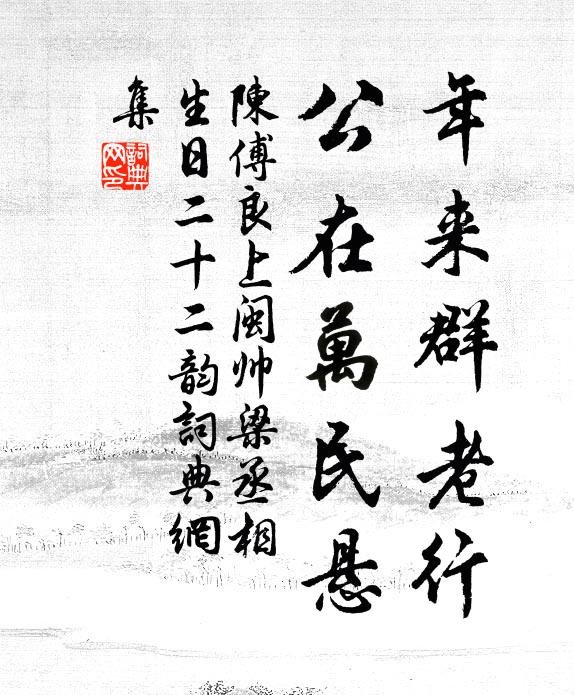 年来群老行
公在萬民悬
陳傅良上閩帅梁丞相
生日二十二韵詞典網
集
詞典
网印